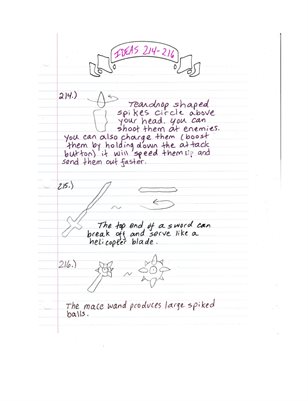 IDEAS 214-216
214.)
Teardrop shaped
spikes circle above
your head. you can
shoot them at enemies.
you can also charge them (boost
them by holding down the attack
button) it will speed them up and
send them out faster.
215.)
The top end of a sword can
break off and serve like a
helicopter blade.
216.)
The mace wand produces large spiked
balls.